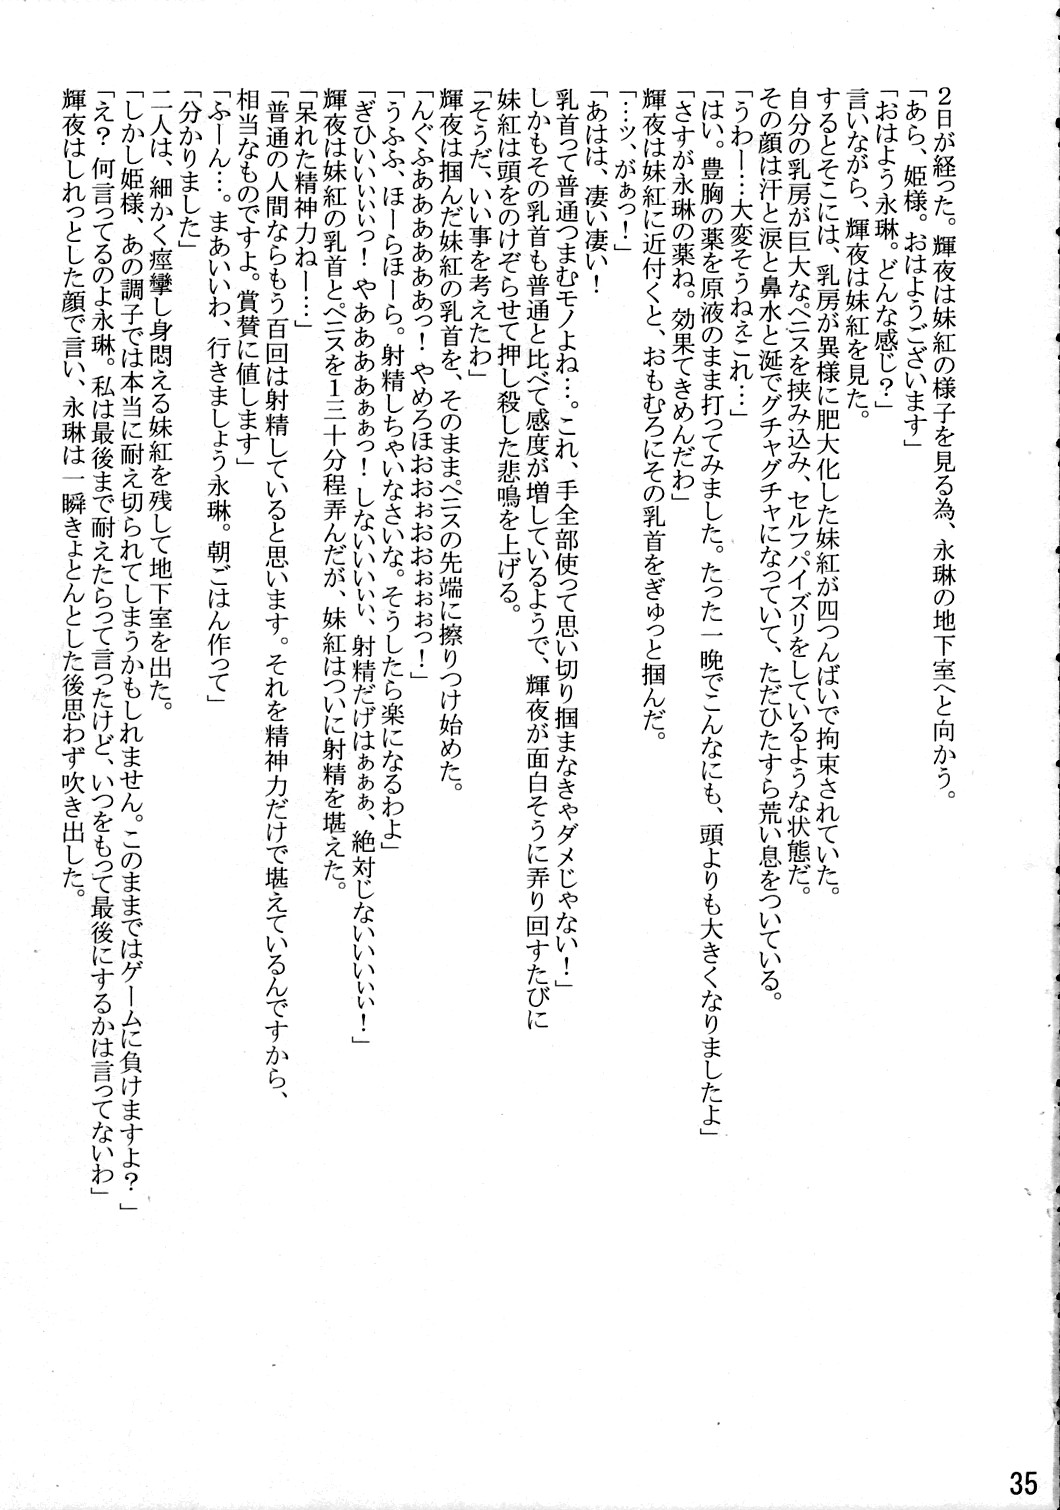 2日が経った。輝夜は妹紅の様子を見る為、永琳の地下室へと向かう。
「あら、姫様。おはようございます」
「おはよう永琳。どんな感じ？」
言いながら、輝夜は妹紅を見た。
するとそこには、乳房が異様に肥大化した妹紅が四つんばいで拘束されていた。
自分の乳房が巨大なペニスを挟み込み、セルフパイズリをしているような状態だ。
その顔は汗と涙と鼻水と涎でグチャグチャになっていて、ただひたすら荒い息をついている。
「うわー…大変そうねぇこれ…」
「はい。豊胸の薬を原液のまま打ってみました。たった一晩でこんなにも、頭よりも大きくなりましたよ」
「さすが永琳の薬ね。効果てきめんだわ」
輝夜は妹紅に近付くと、おもむろにその乳首をぎゅっと掴んだ。
「…ッ、がぁっ！」
「あはは、凄い凄い！
乳首って普通つまむモノよね…。これ、手全部使って思い切り掴まなきゃダメじゃない！」
しかもその乳首も普通と比べて感度が増しているようで、輝夜が面白そうに弄り回すたびに
妹紅は頭をのけぞらせて押し殺した悲鳴を上げる。
「そうだ、いい事を考えたわ」
輝夜は掴んだ妹紅の乳首を、そのままペニスの先端に擦りつけ始めた。
「んぐふああああああっ！やめろほおおおおおぉぉぉっ！」
「うふふ、ほーらほーら。射精しちゃいなさいな。そうしたら楽になるわよ」
「ぎひいいぃぃいっ！やああああぁぁっ！しないいいぃぃ、射精だげはぁぁぁ、絶対じないいいいぃぃ！」
輝夜は妹紅の乳首とペニスを1三十分程弄んだが、妹紅はついに射精を堪えた。
「呆れた精神力ねー…」
「普通の人間ならもう百回は射精していると思います。それを精神力だけで堪えているんですから、
相当なものですよ。賞賛に値します」
「ふーん…。まあいいわ、行きましょう永琳。朝ごはん作って」
「分かりました」
二人は、細かく痙攣し身悶える妹紅を残して地下室を出た。
「しかし姫様、あの調子では本当に耐え切られてしまうかもしれません。このままではゲームに負けますよ？」
「え？何言ってるのよ永琳。私は最後まで耐えたらって言ったけど、いつをもって最後にするかは言ってないわ」
輝夜はしれっとした顔で言い、永琳は一瞬きょとんとした後思わず吹き出した。
35